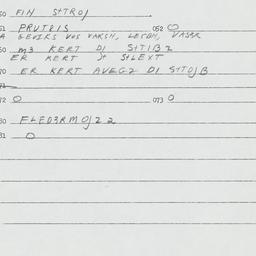 50 FIN STTROJ
51 PRUTEIS 052 O
A GEVIRS VUS VARSH, LESDH, VASAR
60 M3 KERT DI STTIB2
ER KERT Jt STLEXT
70 ER KERT AVEG2 DI STTOJB
71
72 O 073 O
80 FLED3RMOJ22
81 O